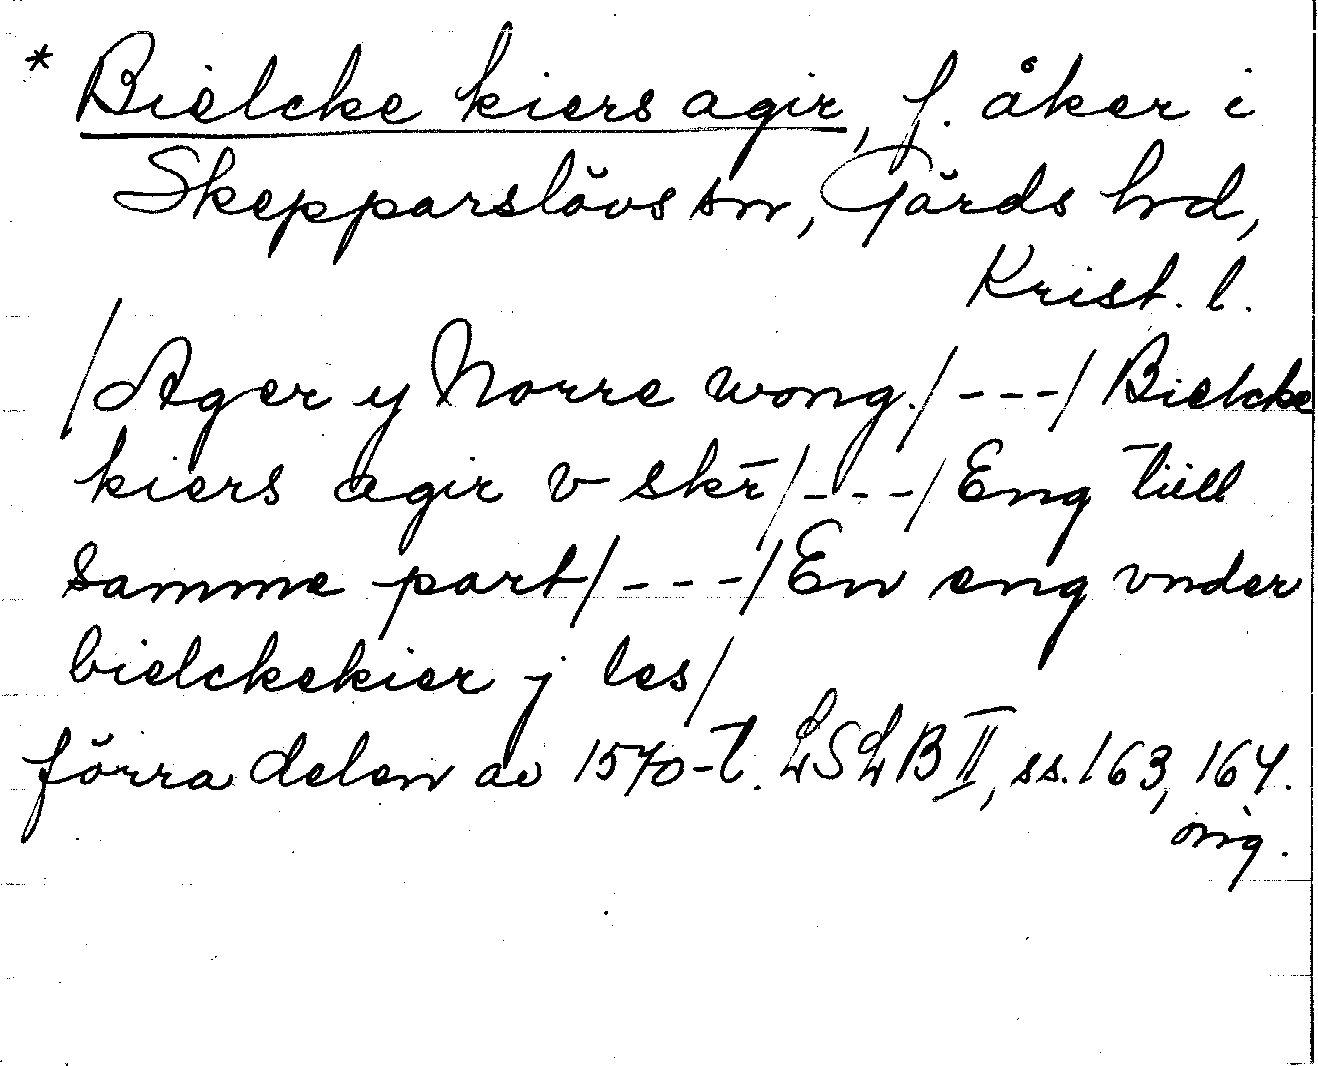 * Bielcke kiers agir, f. åker i
Skepparslövs sn, Gärds hd,
Krist. l.
/Ager y Norre wong./---/ Bielcke
kiers agir v skr̄/---/ Eng tiill
samme part/---/ En eng vnder
bielckekier j les/
förra delen av 1570-t. LSLB II, ss. 163, 164.
orig.